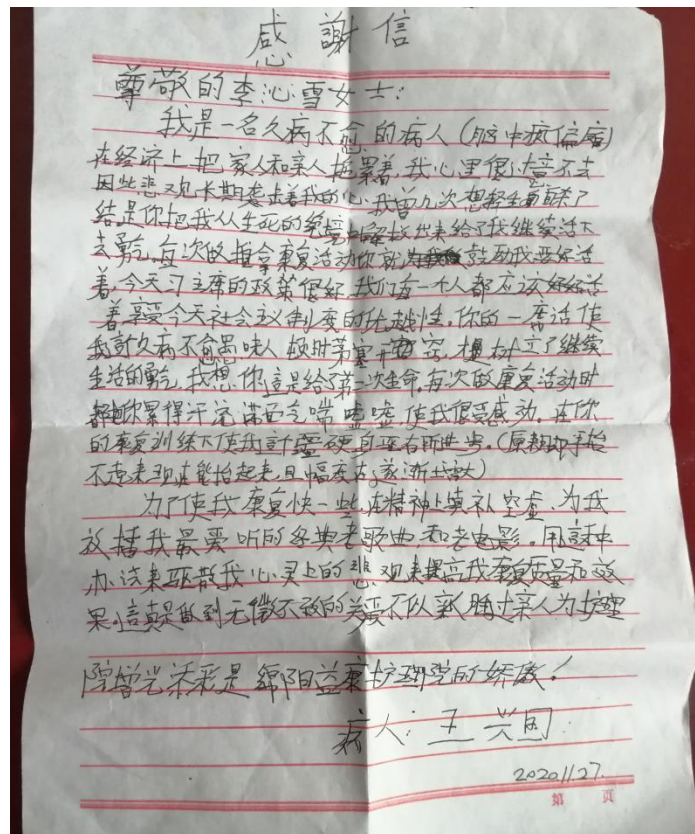 感謝信
尊敬的李沁雪女士:
我是一名久病不愈的病人(脑中疯偏瘫)
在经济上把家人和亲人拖累着,我心里很过意不去
因此悲观长期卷着我的心,我曾几次想轻生
结是你把我从生死的解救出来给了我继续活下
去勇气,每次的推拿康复活动你就鼓励我要好活
着,今天习主席的政策很好,我们每一个人都应该好好活
着享受今天社会主义制度的优越性,你的一席话使
我这久病不愈愚味人顿时茅塞开,树立了继续
生活的勇气,我想你這是给了第二次生命,每次做康复活动时
都把你累得汗流满面气喘嘘嘘,使我很受感动。在你
的康复训练下使我有所进步。(原都手抬
不起来现在能抬起来,且幅度在逐渐扩大)
为了使我康复快一些,在精神上填补空虚,为我
放播我最爱听的经典老歌曲和老电影。用這种
办法来驱散我心灵上的悲观来提高我康复质量和效
果。這真是做到无微不致的关爱不似亲人胜过亲人为护理
院增光添彩是绵阳益康护理院的娇傲!
病人:王兴国
2020.11.27.
第 页